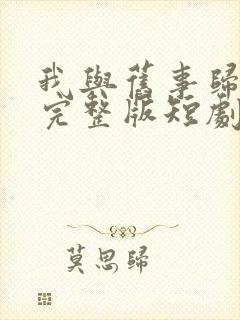 我與舊事歸
完整版短劇
莫思歸